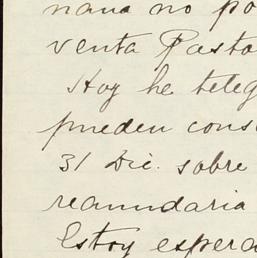 nana no po
venta Pasto
Hoy he teleg
pueden cons
31 Dic. sobre
reanudaria
Estoy espera